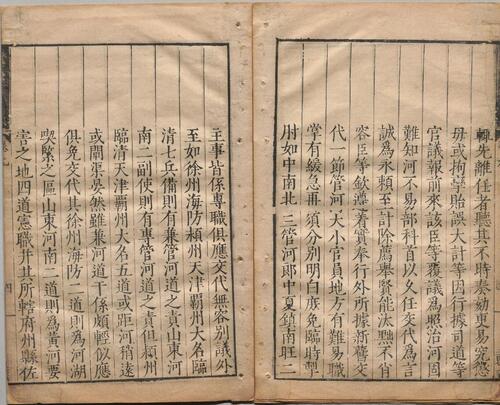 輙先離任者聽其不時奏劾更易究懲
毋或拘攣貽誤大計等因行據司道等
官議報前來該臣等覆議為照治河固
難知河不易部科首以久任交代為言
誠為永賴至計除薦舉賢能汰黜不肖
容臣等欽遵着實舉行外所據新舊交
代一節管河大小官員地方有難易職
掌有緩急再須分別明白庶免臨時掣
肘如中南北三管河郎中夏鎮南旺二
主事皆係專職俱應交代無容別議外
至如徐州海防潁州天津霸州大名臨
清七兵備則有兼管河道之責山東河
南二副使則有專管河道之責但潁州
臨清天津霸州大名五道或距河稍遠
或閘渠晏然雖兼河道干係頗輕似應
俱免交代其徐州海防二道則為黃河
喫緊之區山東河南二道則為黃河要
害之地四道憲職并其所轄府州縣佐